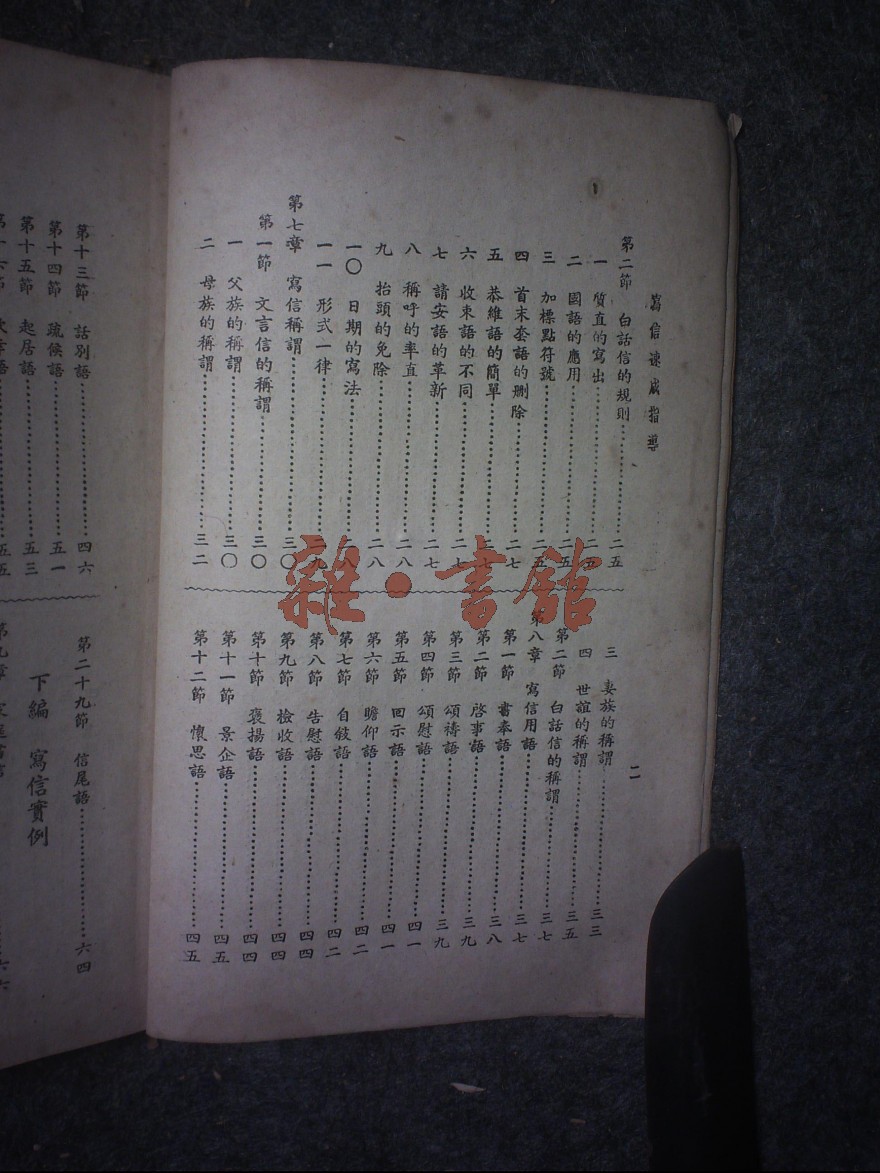 寫信速成指導
二
第二節 白話信的規則 二五
一 質直的寫出 二五
二 國語的應用 二五
三 加標點符號 二五
四 首末套語的刪除 二七
五 恭維語的簡單 二七
六 收束語的不同 二七
七 請安語的革新 二七
八 稱呼的率直 二八
九 抬頭的免除 二八
一〇 日期的寫法 二八
一一 形式一律 二九
第七章 寫信稱謂 三〇
第一節 文言信的稱謂 三〇
一 父族的稱謂 三〇
二 母族的稱謂 三二
三 妻族的稱謂 三三
四 世誼的稱謂 三五
第二節 白話信的稱謂 三七
第八章 寫信用語 三七
第一節 書奉語 三八
第二節 啓事語 三九
第三節 頌禱語 三九
第四節 頌慰語 四一
第五節 回示語 四一
第六節 瞻仰語 四二
第七節 自敍語 四二
第八節 告慰語 四四
第九節 檢收語 四四
第十節 褒揚語 四四
第十一節 景企語 四五
第十二節 懷思語 四五
第十三節 話別語 四六
第十四節 疏候語 五一
第十五節 起居語 五三
第二十九節 信尾語 六四
下編 寫信實例
雜·書館